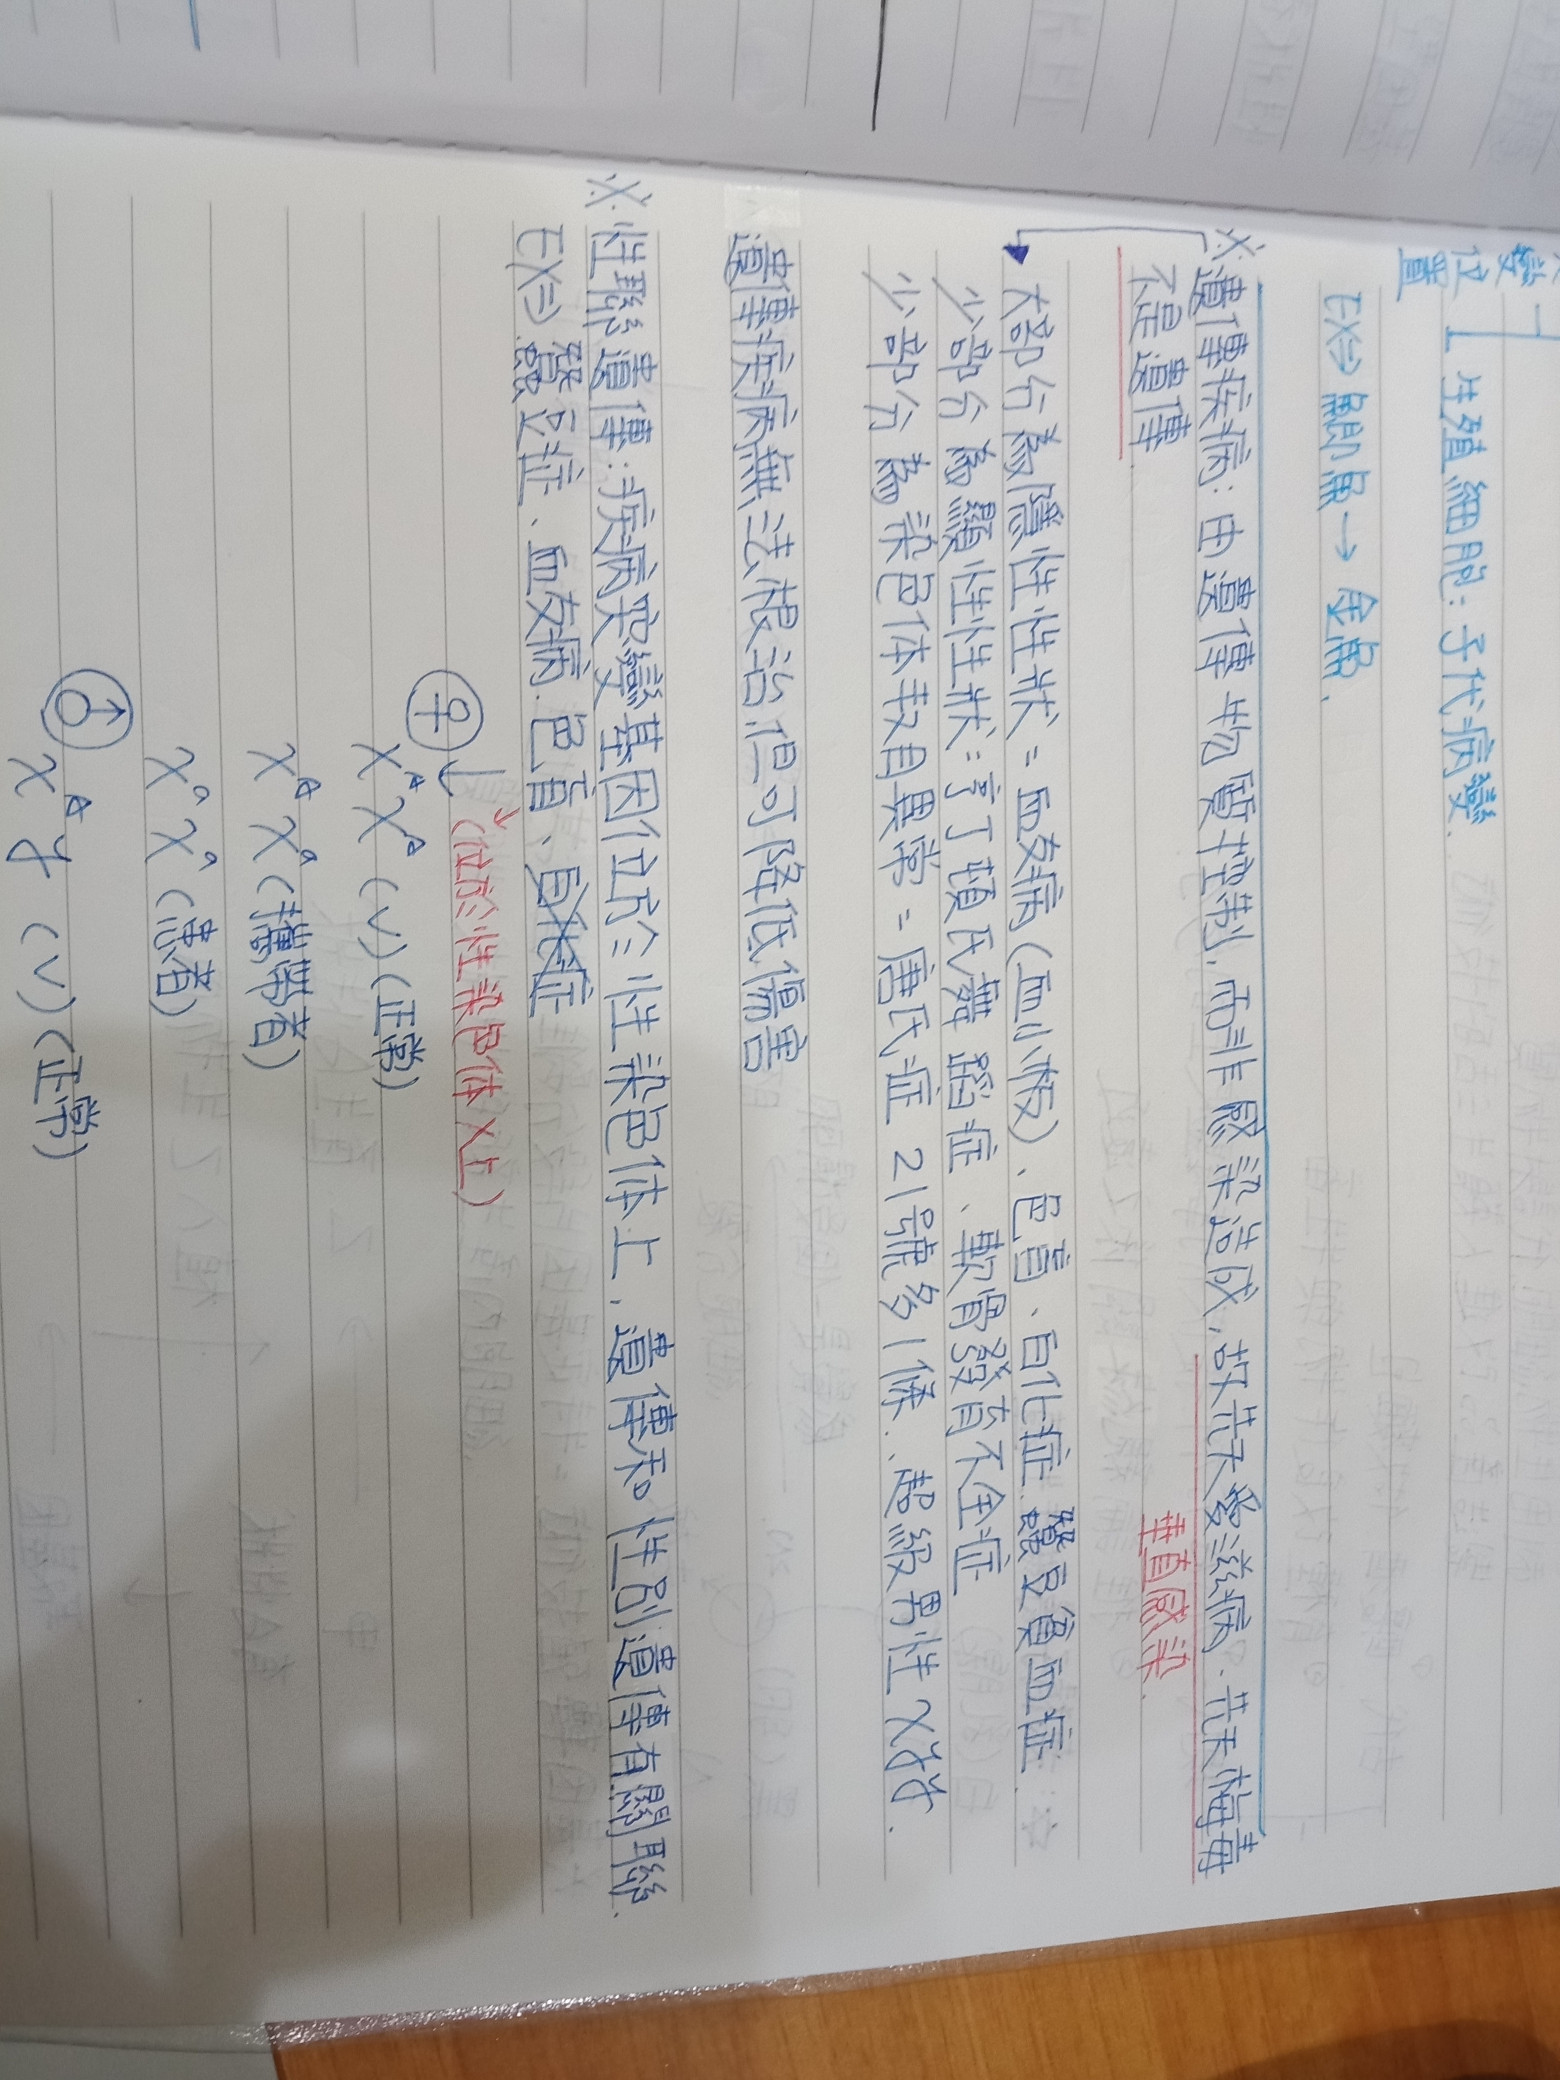 變 ┌
位 └ 生殖細胞：子代病變.
置
EX⇒ 鯽魚→金魚.
※遺傳疾病：由遺傳物質控制，而非感染造成，故先天愛滋病、先天梅毒
不是遺傳
垂直感染.
大部分為隱性性狀=血友病(血小板)、色盲、白化症、蠶豆貧血症.☆
少部份為顯性性狀=亨丁頓氏舞蹈症、軟骨發育不全症
少部分為染色体数目異常=唐氏症 21號多1條.、超級男性XYY.
遺傳疾病無法根治但可降低傷害
※性聯遺傳：疾病突變基因位於性染色体上，遺傳和性別遺傳有關聯.
EX⇒蠶豆症、血友病、色盲、白化症
♀↓ (位於性染色体X上)
XᴬXᴬ (V)(正常)
XᴬXᵃ (攜帶者)
XᵃXᵃ (患者)
♂ XᴬY (V)(正常)